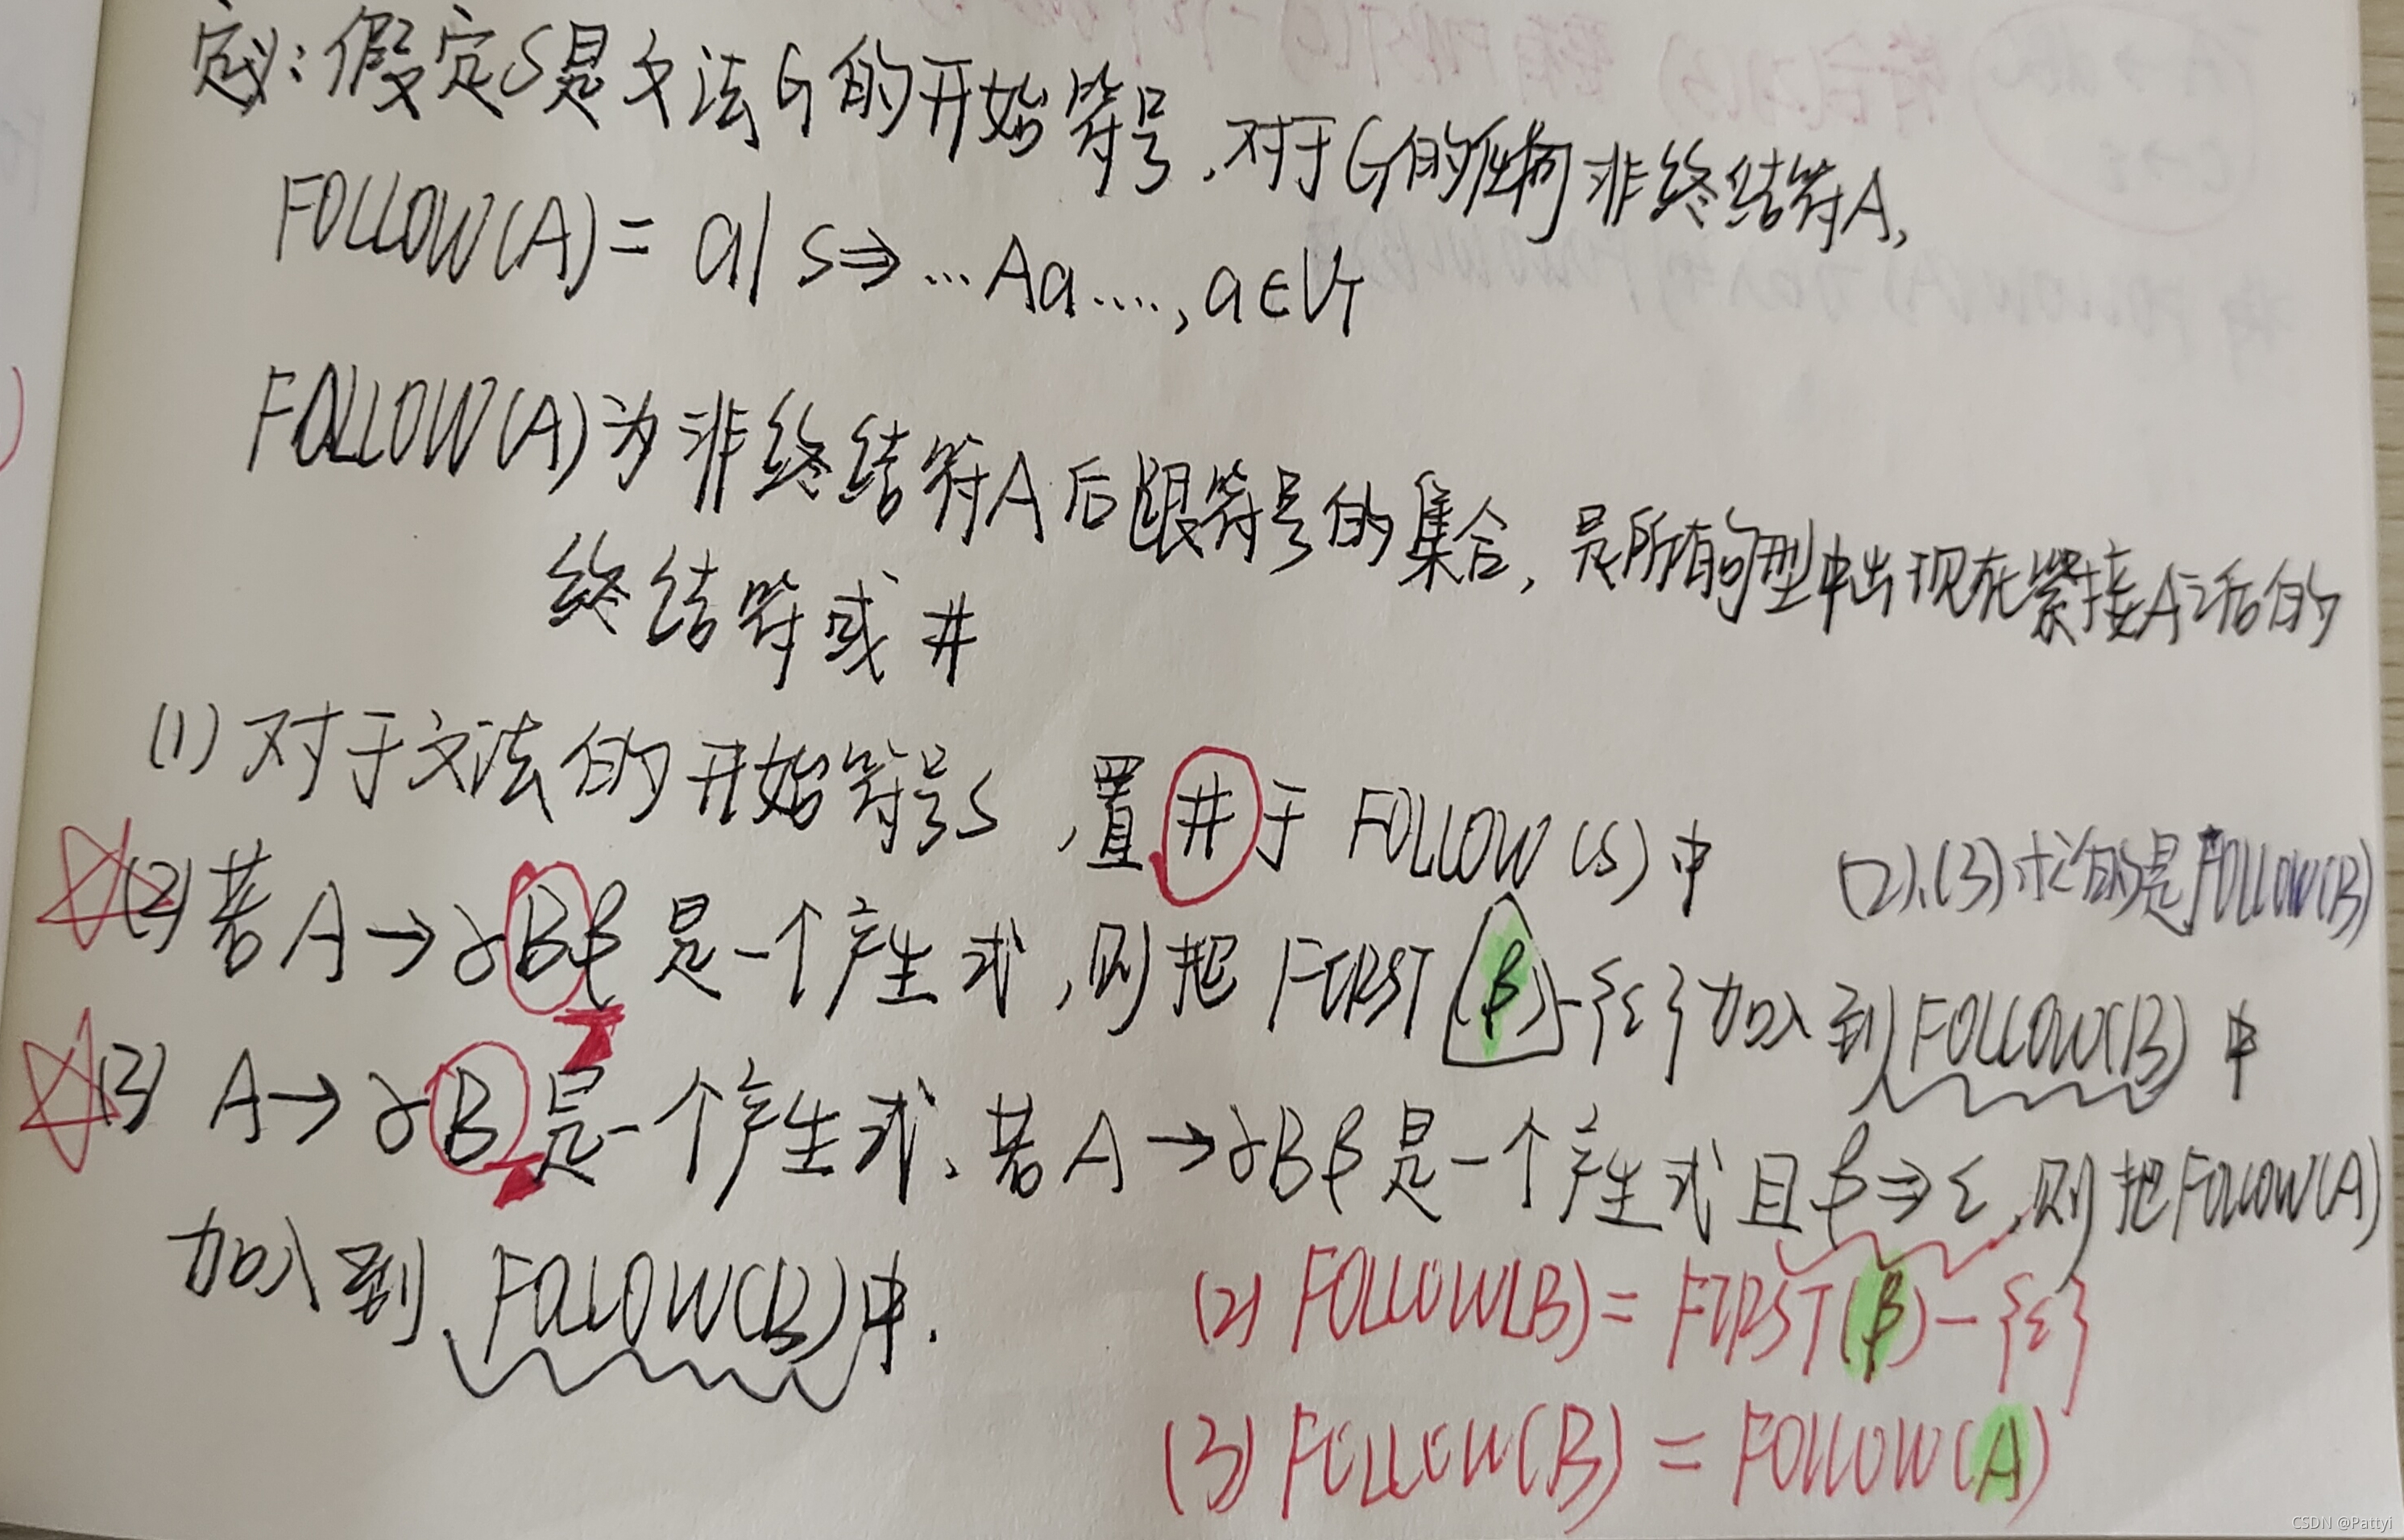 定义：假定S是文法G的开始符号，对于G的任何非终结符A，
FOLLOW(A)= a| S⇒…Aa….,a∈VT
FOLLOW(A)为非终结符A后跟符号的集合，是所有句型中出现在紧接A之后的
终结符或#
(1)对于文法的开始符号S，置#于FOLLOW(S)中
(2)、(3)求的是FOLLOW(B)
(2)若A→αBβ是一个产生式，则把FIRST(β)-{ε}加入到FOLLOW(B)中
(3) A→αB是一个产生式、若A→αBβ是一个产生式且β⇒ε，则把FOLLOW(A)
加入到FOLLOW(B)中.
(2) FOLLOW(B)=FIRST(β)-{ε}
(3) FOLLOW(B)=FOLLOW(A)
CSDN @Pattyi